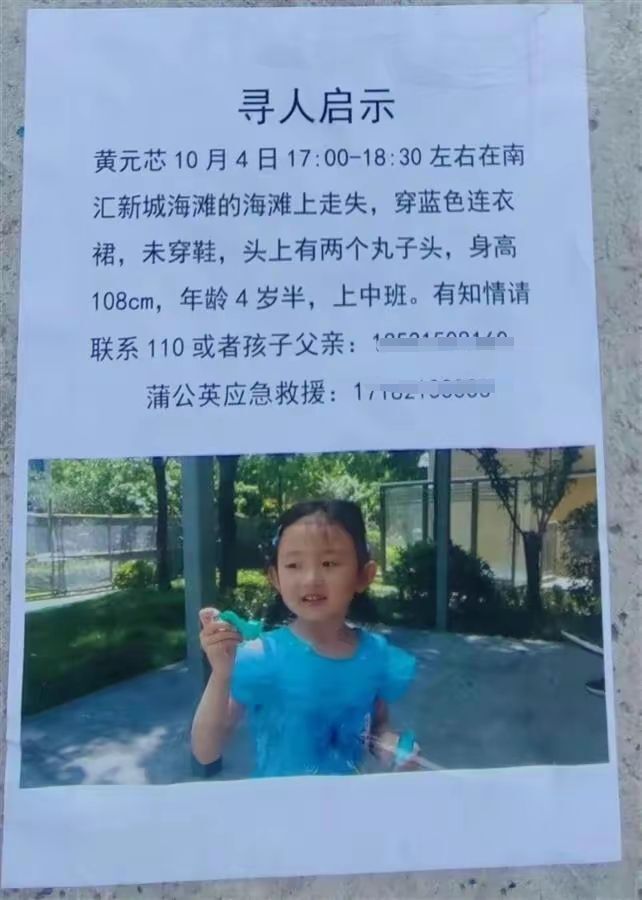 寻人启示
黄元芯10月4日17:00-18:30左右在南
汇新城海滩的海滩上走失，穿蓝色连衣
裙，未穿鞋，头上有两个丸子头，身高
108cm，年龄4岁半，上中班。有知情请
联系110或者孩子父亲：
蒲公英应急救援：